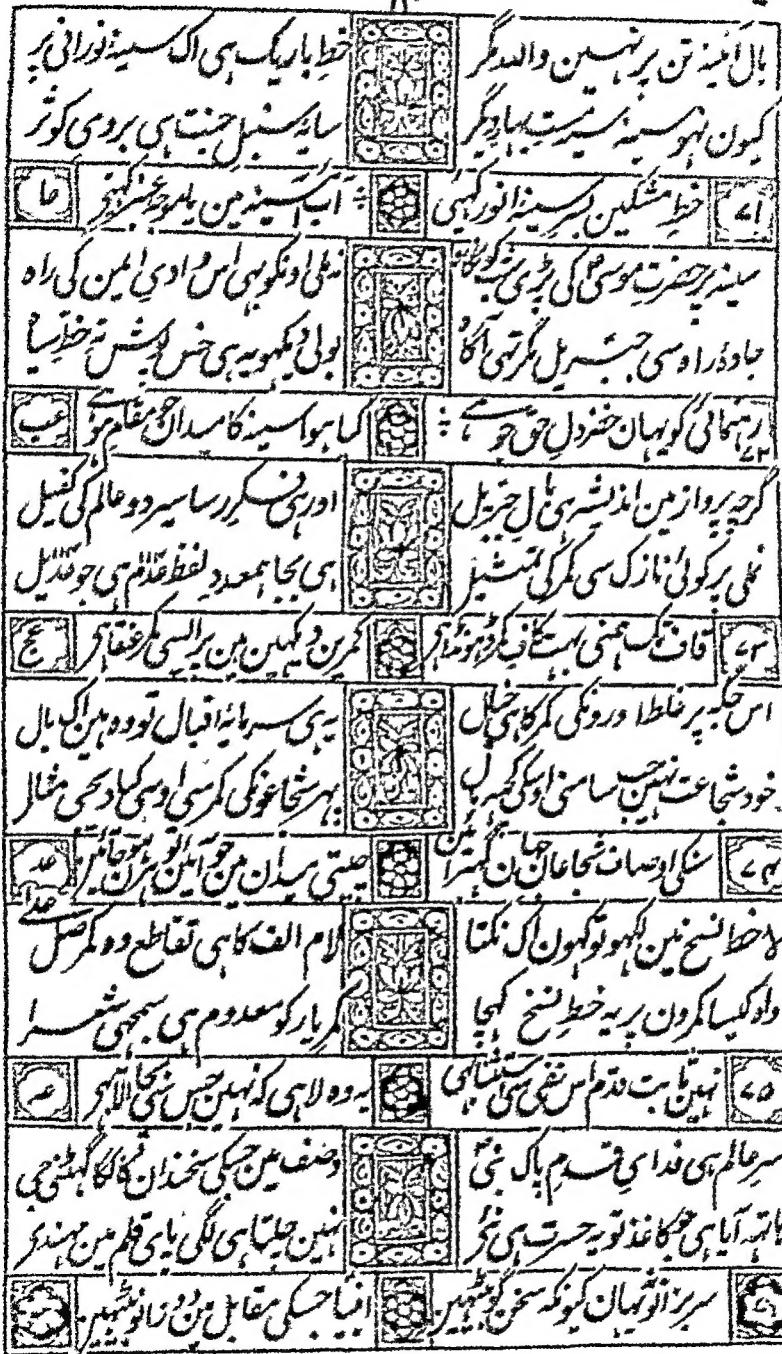 بال آئینہ تن پر نہین والد مگر خطِ باریک ہی اک سینۂ نورانی پر
کیون نہو سینہ سیر مست بہار دیگر سایۂ سنبلِ جنت ہی بروی کوثر
۷۱ خطِ مشکین بسرِ سینۂ انور کہئی آب آئینہ مین یا موجۂ عنبر کہئی عا
سینہ پر حضرتِ موسیٰؑ کی پڑی جب کہ نگاہ نہ ملی اونکو بہی اس وادیِ ایمن کی راہ
جادۂ راہ سی جبریل مگر تہی آگاہ بولی دیکہو یہ ہی خس پوش تہِ خطِ سیاہ
۷۲ رہنمائی کو یہان خضر دلِ حق جو ہے کیا ہوا سینہ کا میدان جو مقامِ ہو ہے عب
گرچہ پرواز مین اندیشہ ہی بالِ جبریل اور ہی فکرِ رسا سیرِ دو عالم کی کفیل
نملی پر کوئی نازک سی کمر کی تمثیل ہی بجا ہمعددِ لفظ عدم ہی جو عدیل
۷۳ قاف تک ہمنی بہت کافِ کمر ڈہونڈا ہی کمرین دیکہین ہین پر ایسی کمر عنقا ہی عج
اس جگہ پر غلط اورونکی کمر کا ہی خیال یہ ہی سرمایۂ اقبال تو وہ ہین اک بال
خود شجاعت نہین جب سامنی اوسکی کمر ل پہر شجاعونکی کمر سی اوسی کیا دیجی مثال
۷۴ سنکی اوصاف شجاعانِ جہان گہبرائین چیتی میدان مین جو آئین تو ہرن ہو جائین عد
لا خط نسخ مین لکہو تو کہون اک نکتا لام الف کا ہی تقاطع وہ کمر صلِ علیٰ
واہ کیسا کمرون پر یہ خطِ نسخ کہچا کمرِ یار کو معدوم ہی سمجہی شعرا
۷۵ نہین ثابت قدم اس نفی سی استثنا ہی یہ وہ لا ہی کہ نہین جس سی بجا الا ہی عہ
سرِ عالم ہی فدای قدمِ پاک نبیؐ وصف مین جسکی سخندان کا لگا گہٹنی جی
ہاتہہ آیا ہی جو کاغذ تو یہ حسرت ہی نئی نہین چلتا ہی لگی پای قلم مین مہندی
سر بزانو یہان کیونکہ سخن گو بیٹہین انبیا جسکی مقابل مین دو زانو بیٹہین